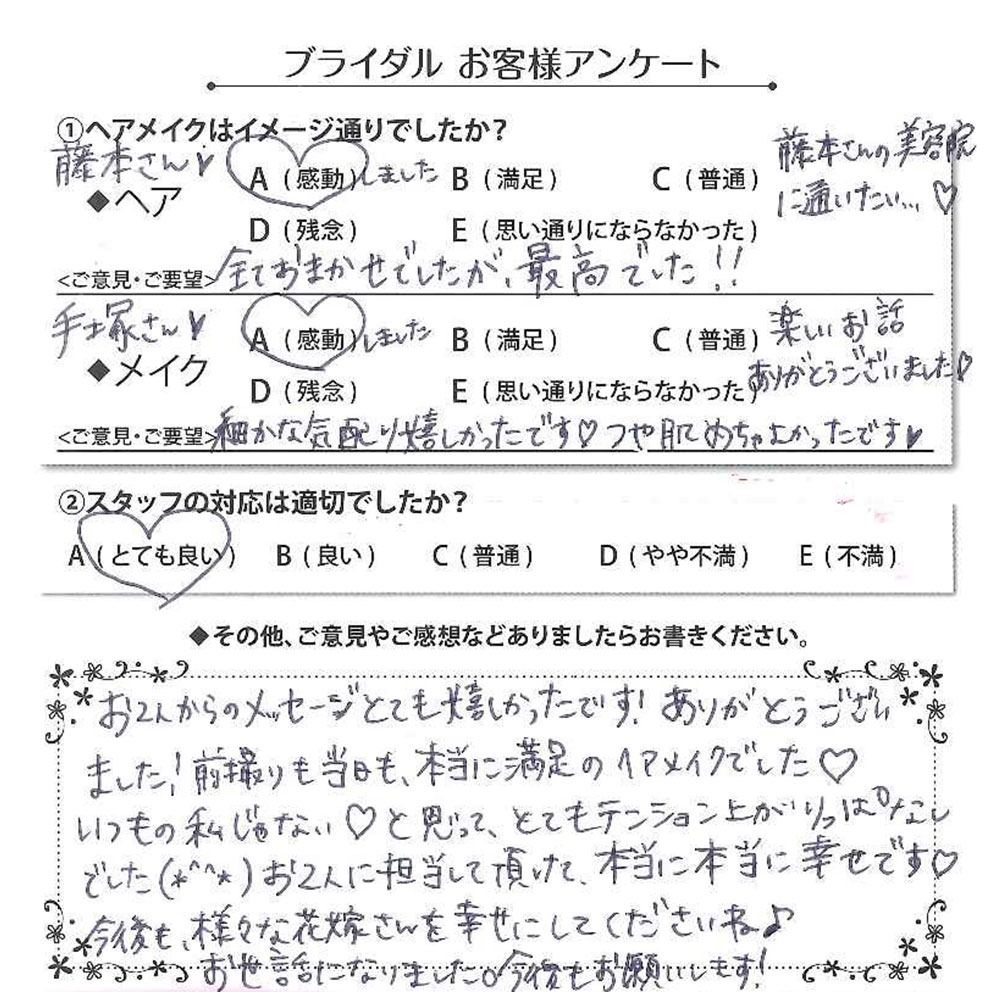 ブライダル お客様アンケート
①ヘアメイクはイメージ通りでしたか？
藤本さん♥
◆ヘア
A（感動）しました B（満足） C（普通）
藤本さんの美容院
に通いたい…♡
D（残念） E（思い通りにならなかった）
<ご意見・ご要望>全ておまかせでしたが、最高でした!!
手塚さん♥
◆メイク
A（感動）しました B（満足） C（普通）
楽しいお話
ありがとうございました♡
D（残念） E（思い通りにならなかった）
<ご意見・ご要望>細かな気配り嬉しかったです♡つや肌めちゃよかったです♥
②スタッフの対応は適切でしたか？
A（とても良い） B（良い） C（普通） D（やや不満） E（不満）
◆その他、ご意見やご感想などありましたらお書きください。
お2人からのメッセージとても嬉しかったです！ありがとうござい
ました！前撮りも当日も、本当に満足のヘアメイクでした♡
いつもの私じゃない♡と思って、とてもテンション上がりっぱなし
でした(*^^*)お2人に担当して頂けて、本当に本当に幸せです♡
今後も、様々な花嫁さんを幸せにしてくださいね♪
お世話になりました。今後もお願いします！